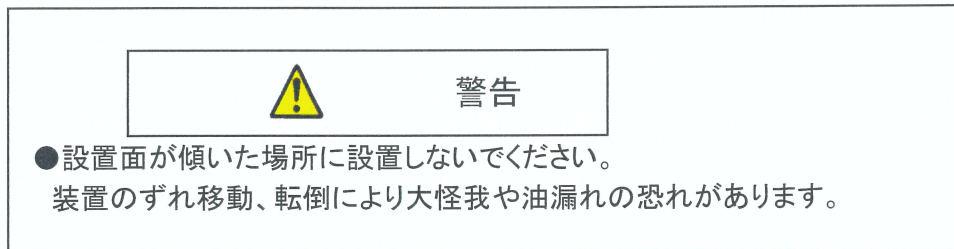 警告
●設置面が傾いた場所に設置しないでください。
装置のずれ移動、転倒により大怪我や油漏れの恐れがあります。